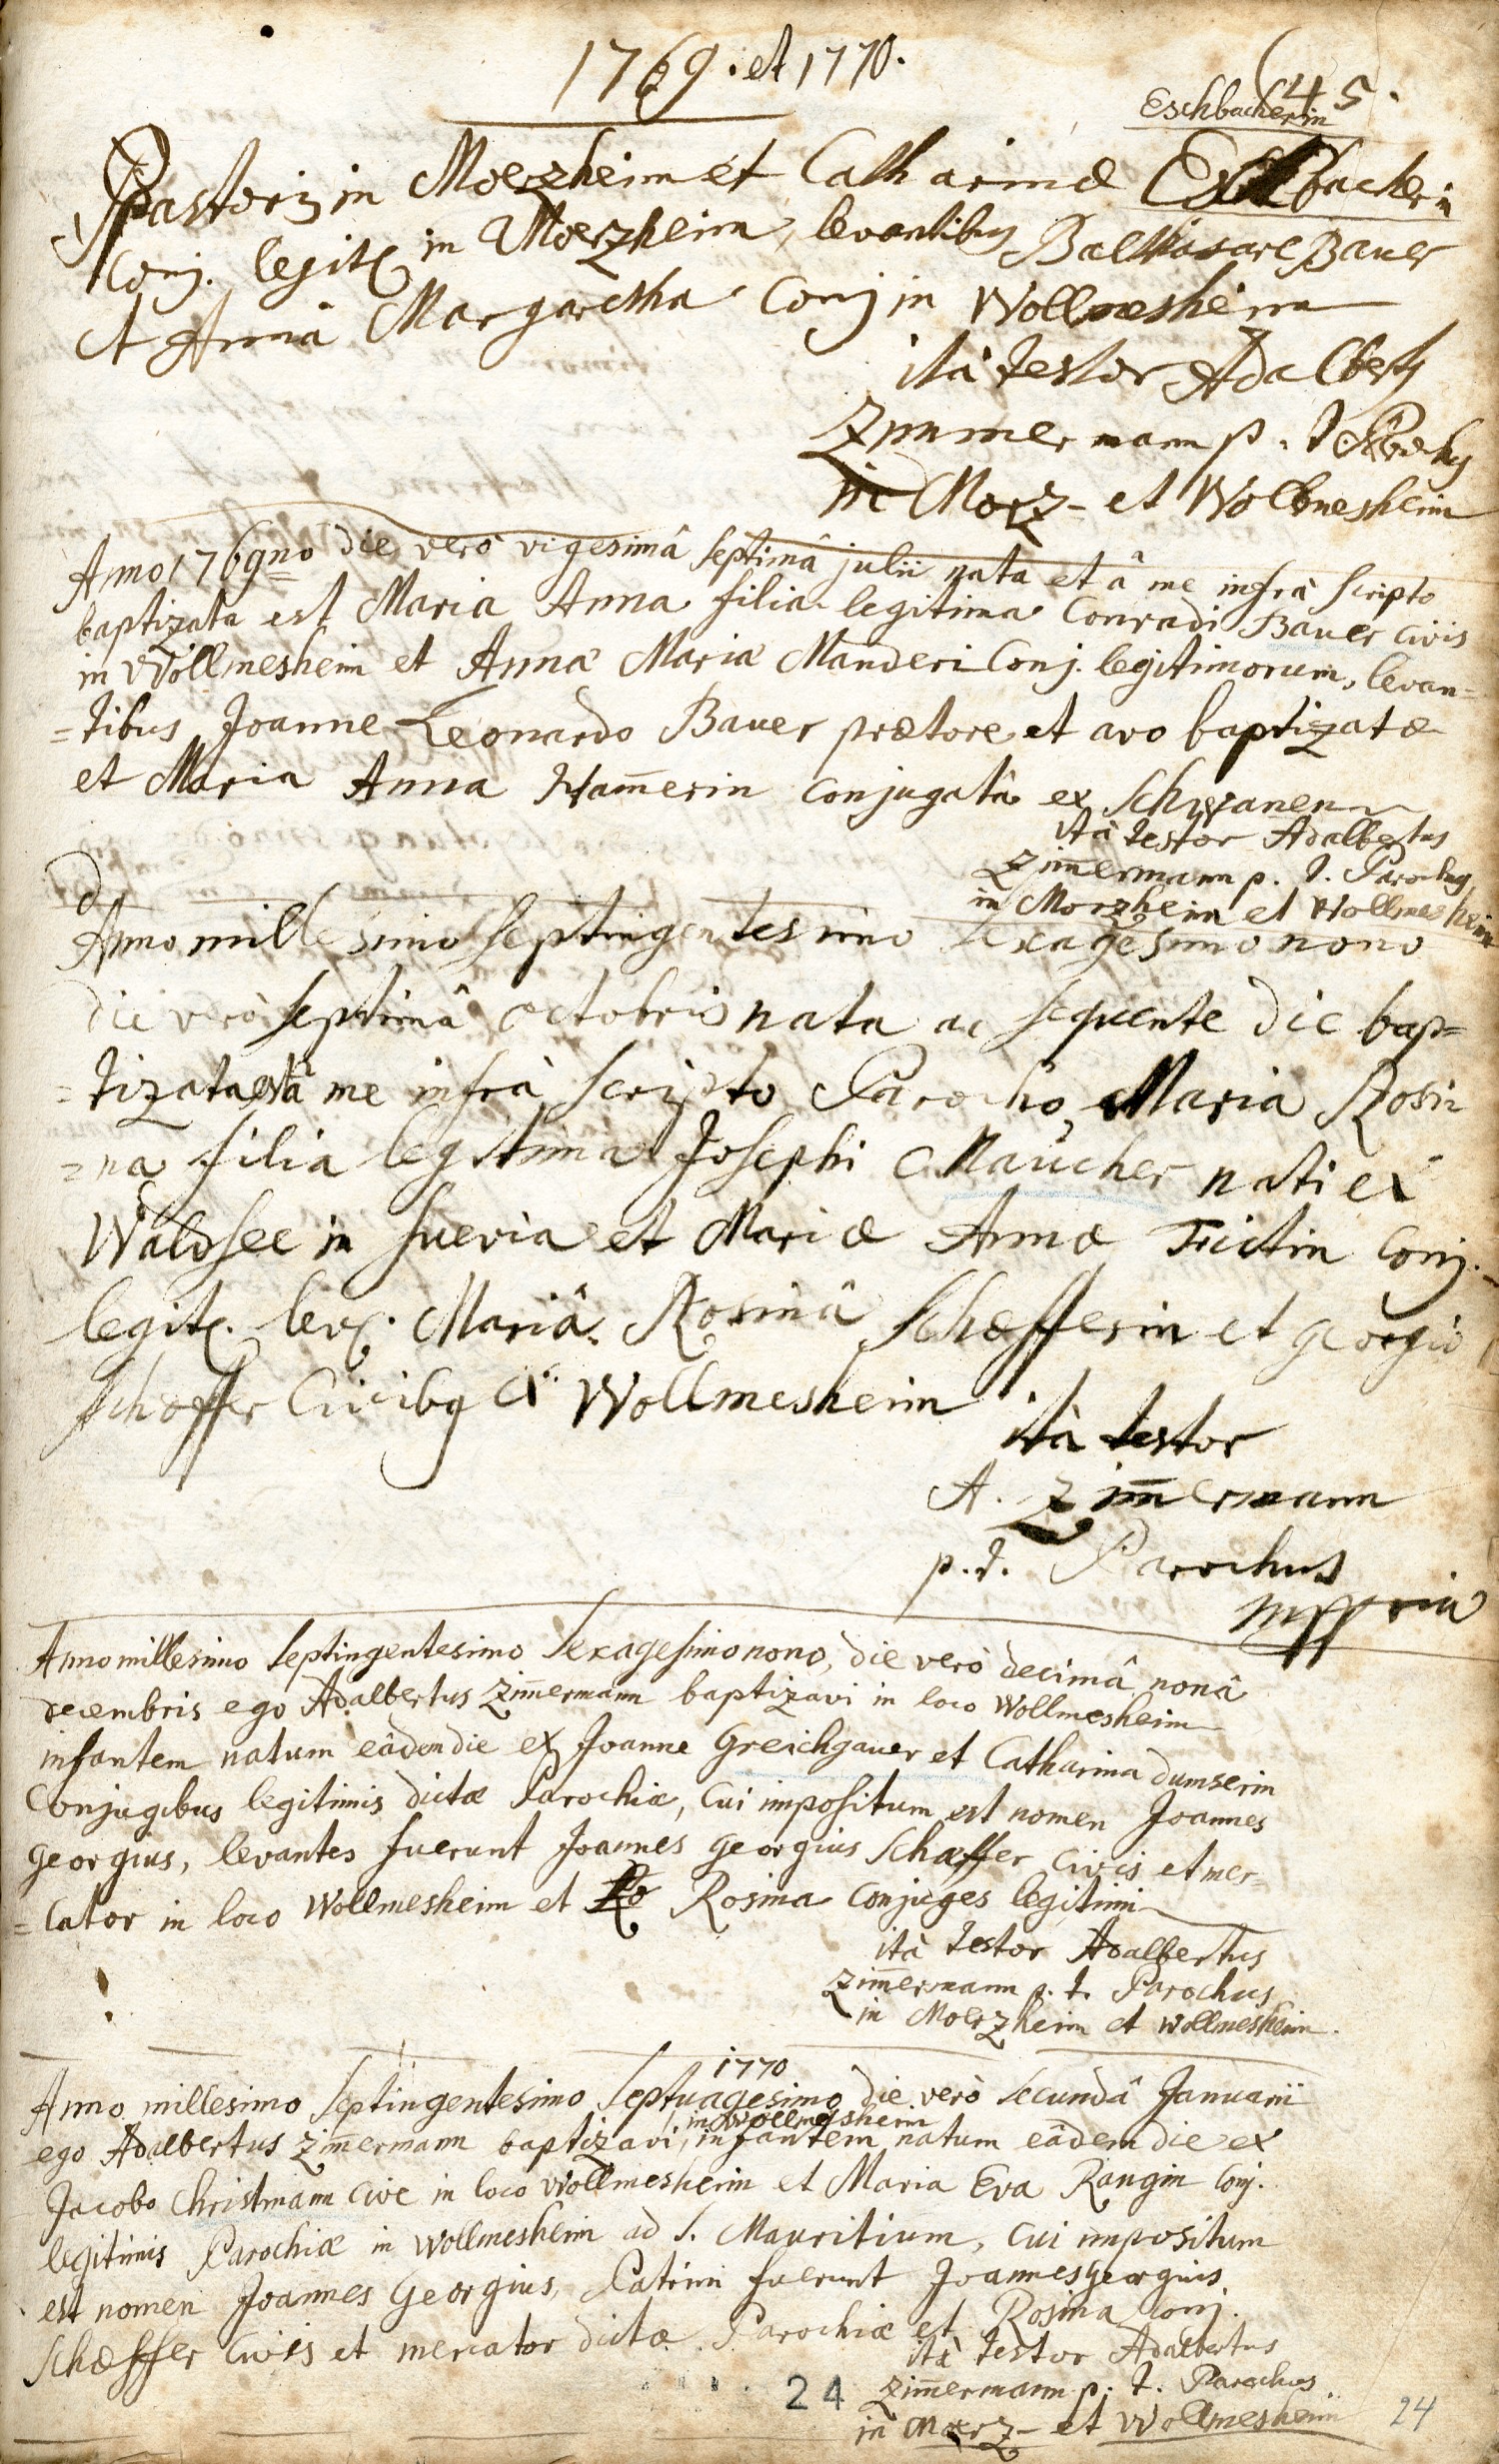 1769. et 1770.
(45.
Eschbacherin
Pastoris in Moerzheim et Catharinæ Eschbacherin
Conj. legit. in Moerzheim, levantibus Balthasare Bauer
et Annâ Margaretha Conj in Wollmesheim
ità testor Adalbertus
Zimmermann p. t. Parochus
in Morz- et Wollmesheim
Anno 1769no die verò vigesimâ septimâ julii nata et â me infrà scripto
baptizata est Maria Anna filia legitima Conradi Bauer civis
in Wollmesheim et Annæ Mariæ Manderi Conj. legitimorum, levan=
=tibus Joanne Leonardo Bauer prætore et avo baptizatæ
et Maria Anna Ham̄erin conjugatâ ex Schwanen
ità testor Adalbertus
Zim̄ermann p. t. Parochus
in Morzheim et Wollmesheim
Anno millesimo septingentesimo sexagesimo nono
die verò septimâ octobris nata ac sequente die bap=
=tizata est â me infrà scripto Parocho Maria Rosi=
=na filia legitima Josephi Maucher nati ex
Waldsee in sueviâ et Mariæ Annæ Trictin Conj.
legit. lev. Mariâ Rosinâ Schæfferin et georgio
Schæffer Civibq ex Wollmesheim
ità testor
A. Zim̄ermann
p. t. Parochus
mppria
Anno millesimo septingentesimo sexagesimo nono, die verò decimâ nonâ
decembris ego Adalbertus Zim̄ermann baptizavi in loco Wollmesheim
infantem natum eâdem die ex Joanne Greichgauer et Catharina dumserin
Conjugibus legitimis dictæ Parochiæ, cui impositum est nomen Joannes
georgius, levantes fuerunt Joannes georgius Schæffer civis et mer=
=cator in loco Wollmesheim et Ro Rosina Conjuges legitimi
ità testor Adalbertus
Zim̄ermann p. t. Parochus
in Moerzheim et Wollmesheim.
1770
Anno millesimo septingentesimo septuagesimo die verò secundâ Januarii
in Wollmesheim
ego Adalbertus Zim̄ermann baptizavi, infantem natum eâdem die ex
Jacobo Christmann cive in loco Wollmesheim et Maria Eva Rangin Conj.
legitimis Parochiæ in Wollmesheim ad S. Mauritium, cui impositum
est nomen Joannes Georgius, Patrini fuerunt Joannes georgius
Schæffer civis et mercator dictæ Parochiæ et Rosina conj.
ità testor Adalbertus
Zim̄ermann p. t. Parochus
in Mœrz- et Wollmesheim
24
24